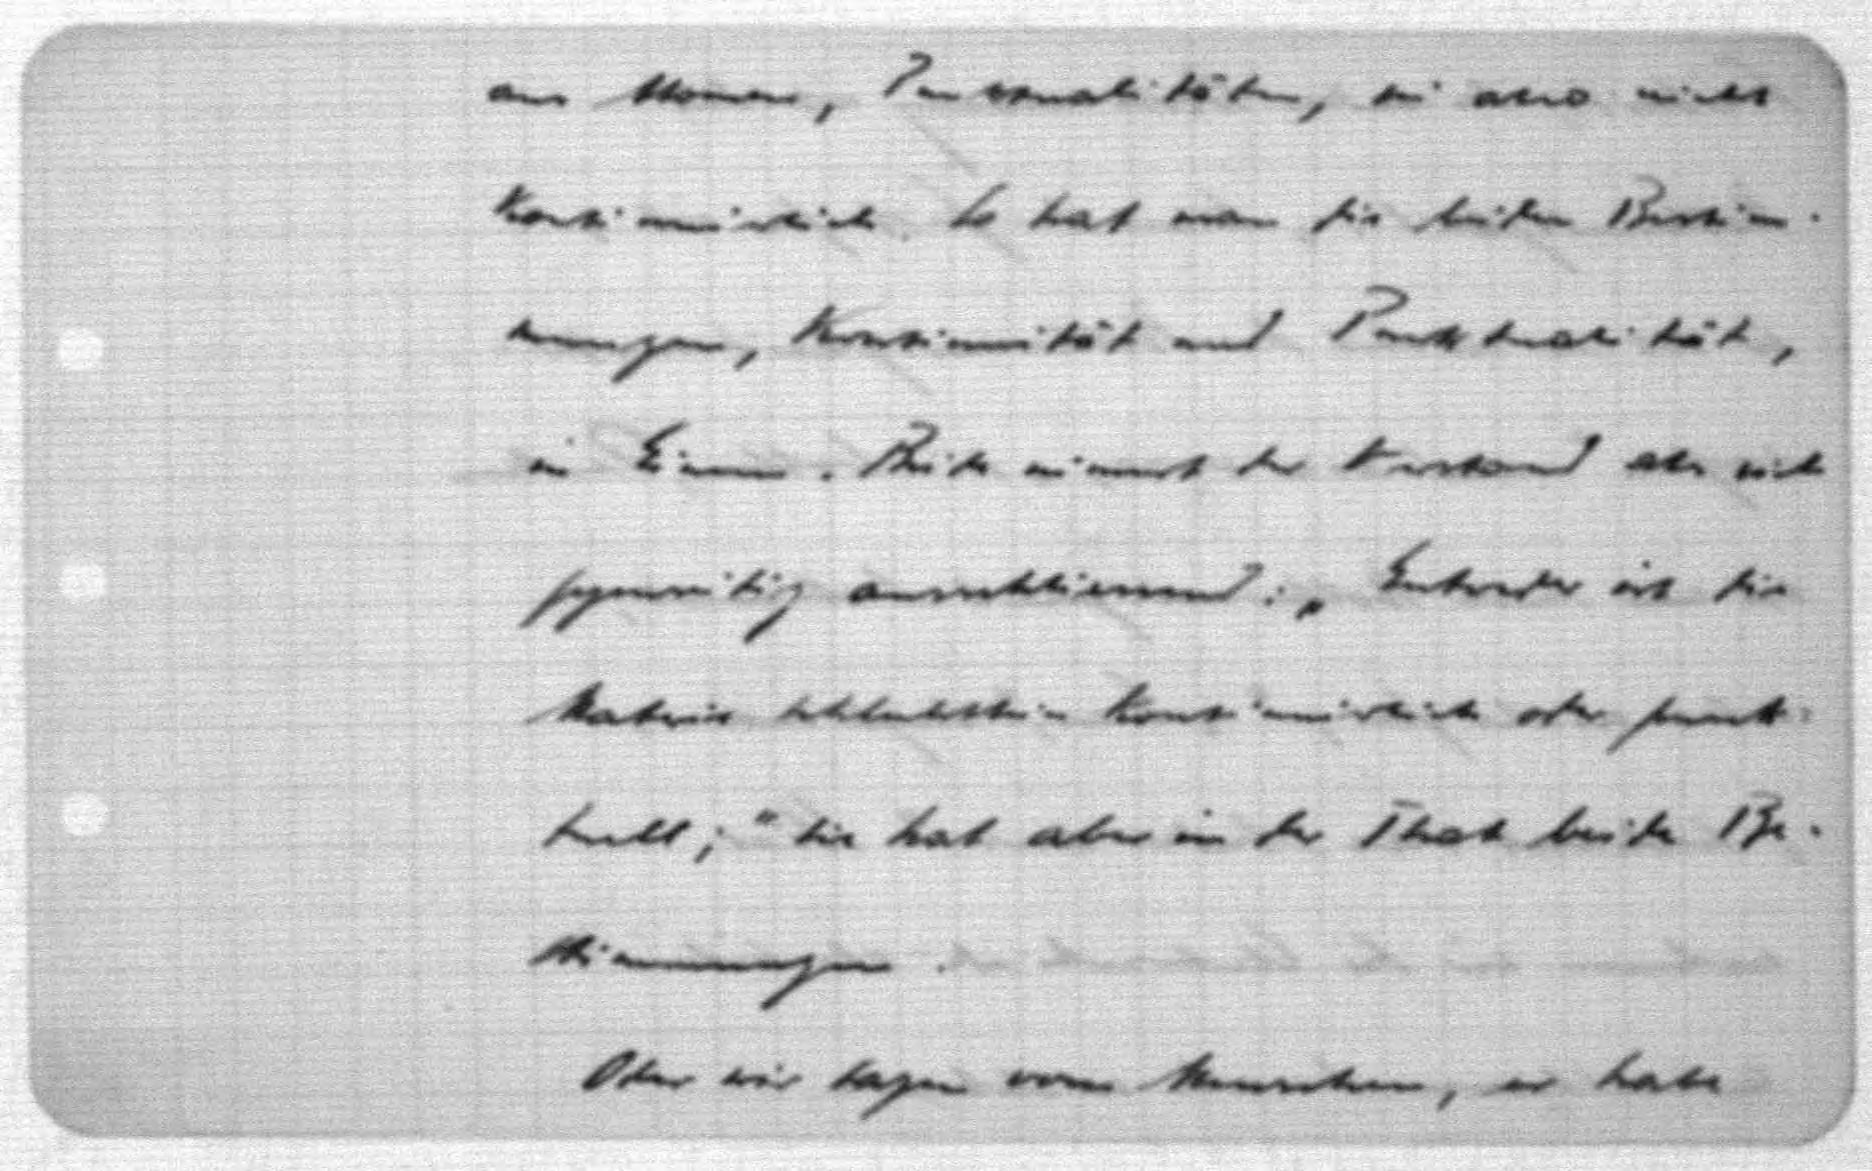 aus Atomen, Punktualitäten, sei also nicht
kontinuirlich. So hat man die beiden Bestim-
mungen, Kontinuität und Punktualität,
in Einem. Beide nimmt der Verstand als sich
gegenseitig ausschliessend: „Entweder ist die
Materie schlechthin kontinuirlich oder punk-
tuell;" sie hat aber in der That beide Be-
stimmungen.
Oder wir sagen vom Menschen, er habe